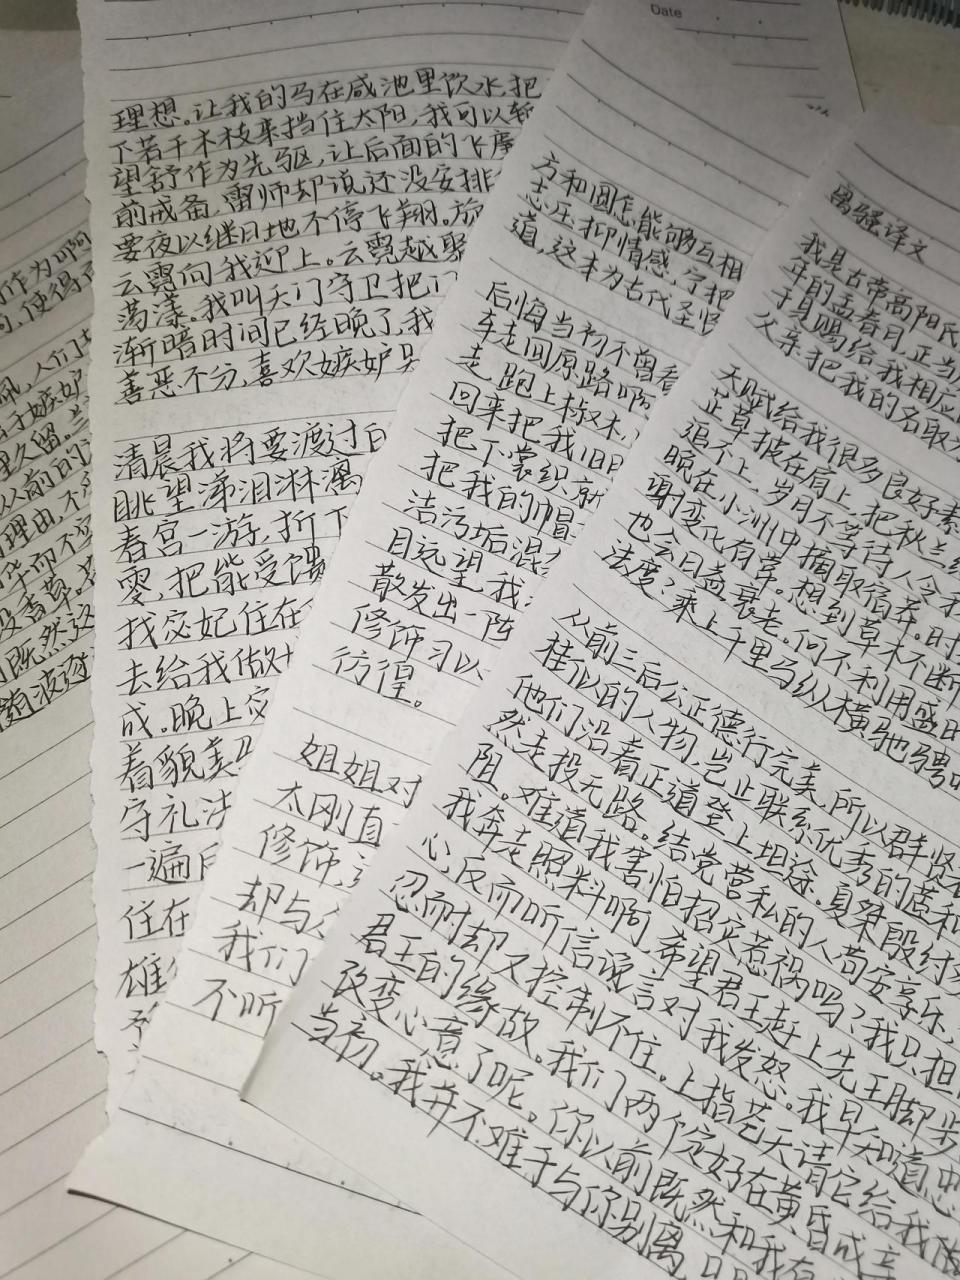 Date
离骚译文
我是古帝高阳氏
年的孟春月,正当
父亲把我的名取
天赋给我很多良好素
芷草披在肩上,把秋兰
追不上,岁月不等待人令我
晚在小洲中摘取宿莽。时
谢变化有常。想到草木不断
也会日益衰老。何不利用盛
法度?乘上千里马纵横驰骋
从前三后公正德行完美,所以群贤
桂似的人物,岂止联系优秀的茝和
他们沿着正道登上坦途。夏桀殷纣
然走投无路。结党营私的人苟安享乐,
阻。难道我害怕招灾惹祸吗?我只担
我奔走照料啊,希望君王赶上先王脚步
心,反而听信谗言对我发怒。我早知道忠
忍耐却又控制不住。上指苍天请它给我做
君王的缘故。我们两个定好在黄昏成亲
改变心意了呢。你以前既然和我有
当初。我并不难于与你别离
方和圆怎能够互相
志压抑情感,宁把
道,这本为古代圣
后悔当初不曾看
车走回原路啊
走,跑上椒木
回来把我旧
把下裳织就
把我的帽
洁污垢混
目远望,我
散发出一阵
修饰习以
彷徨。
姐姐对
太刚直
修饰,
却与
我们
不听
理想。让我的马在咸池里饮水,把
下若干木枝来挡住太阳,我可以暂
望舒作为先驱,让后面的飞廉
前戒备,雷师却说还没安排
要夜以继日地不停飞翔。旋
云霓向我迎上。云霓越聚
荡漾。我叫天门守卫把门
渐暗时间已经晚了,我
善恶不分,喜欢嫉妒
清晨我将要渡过白
眺望涕泪淋漓
春宫一游,折下
零,把能受馈
找宓妃住在
去给我做
成。晚上宓
着貌美
守礼法
一遍
住在
雄
作为
,使得
佩,人们
嫉妒
久留。兰
以前的
理由,不
华而不实
没香草。
既然这
随波逐